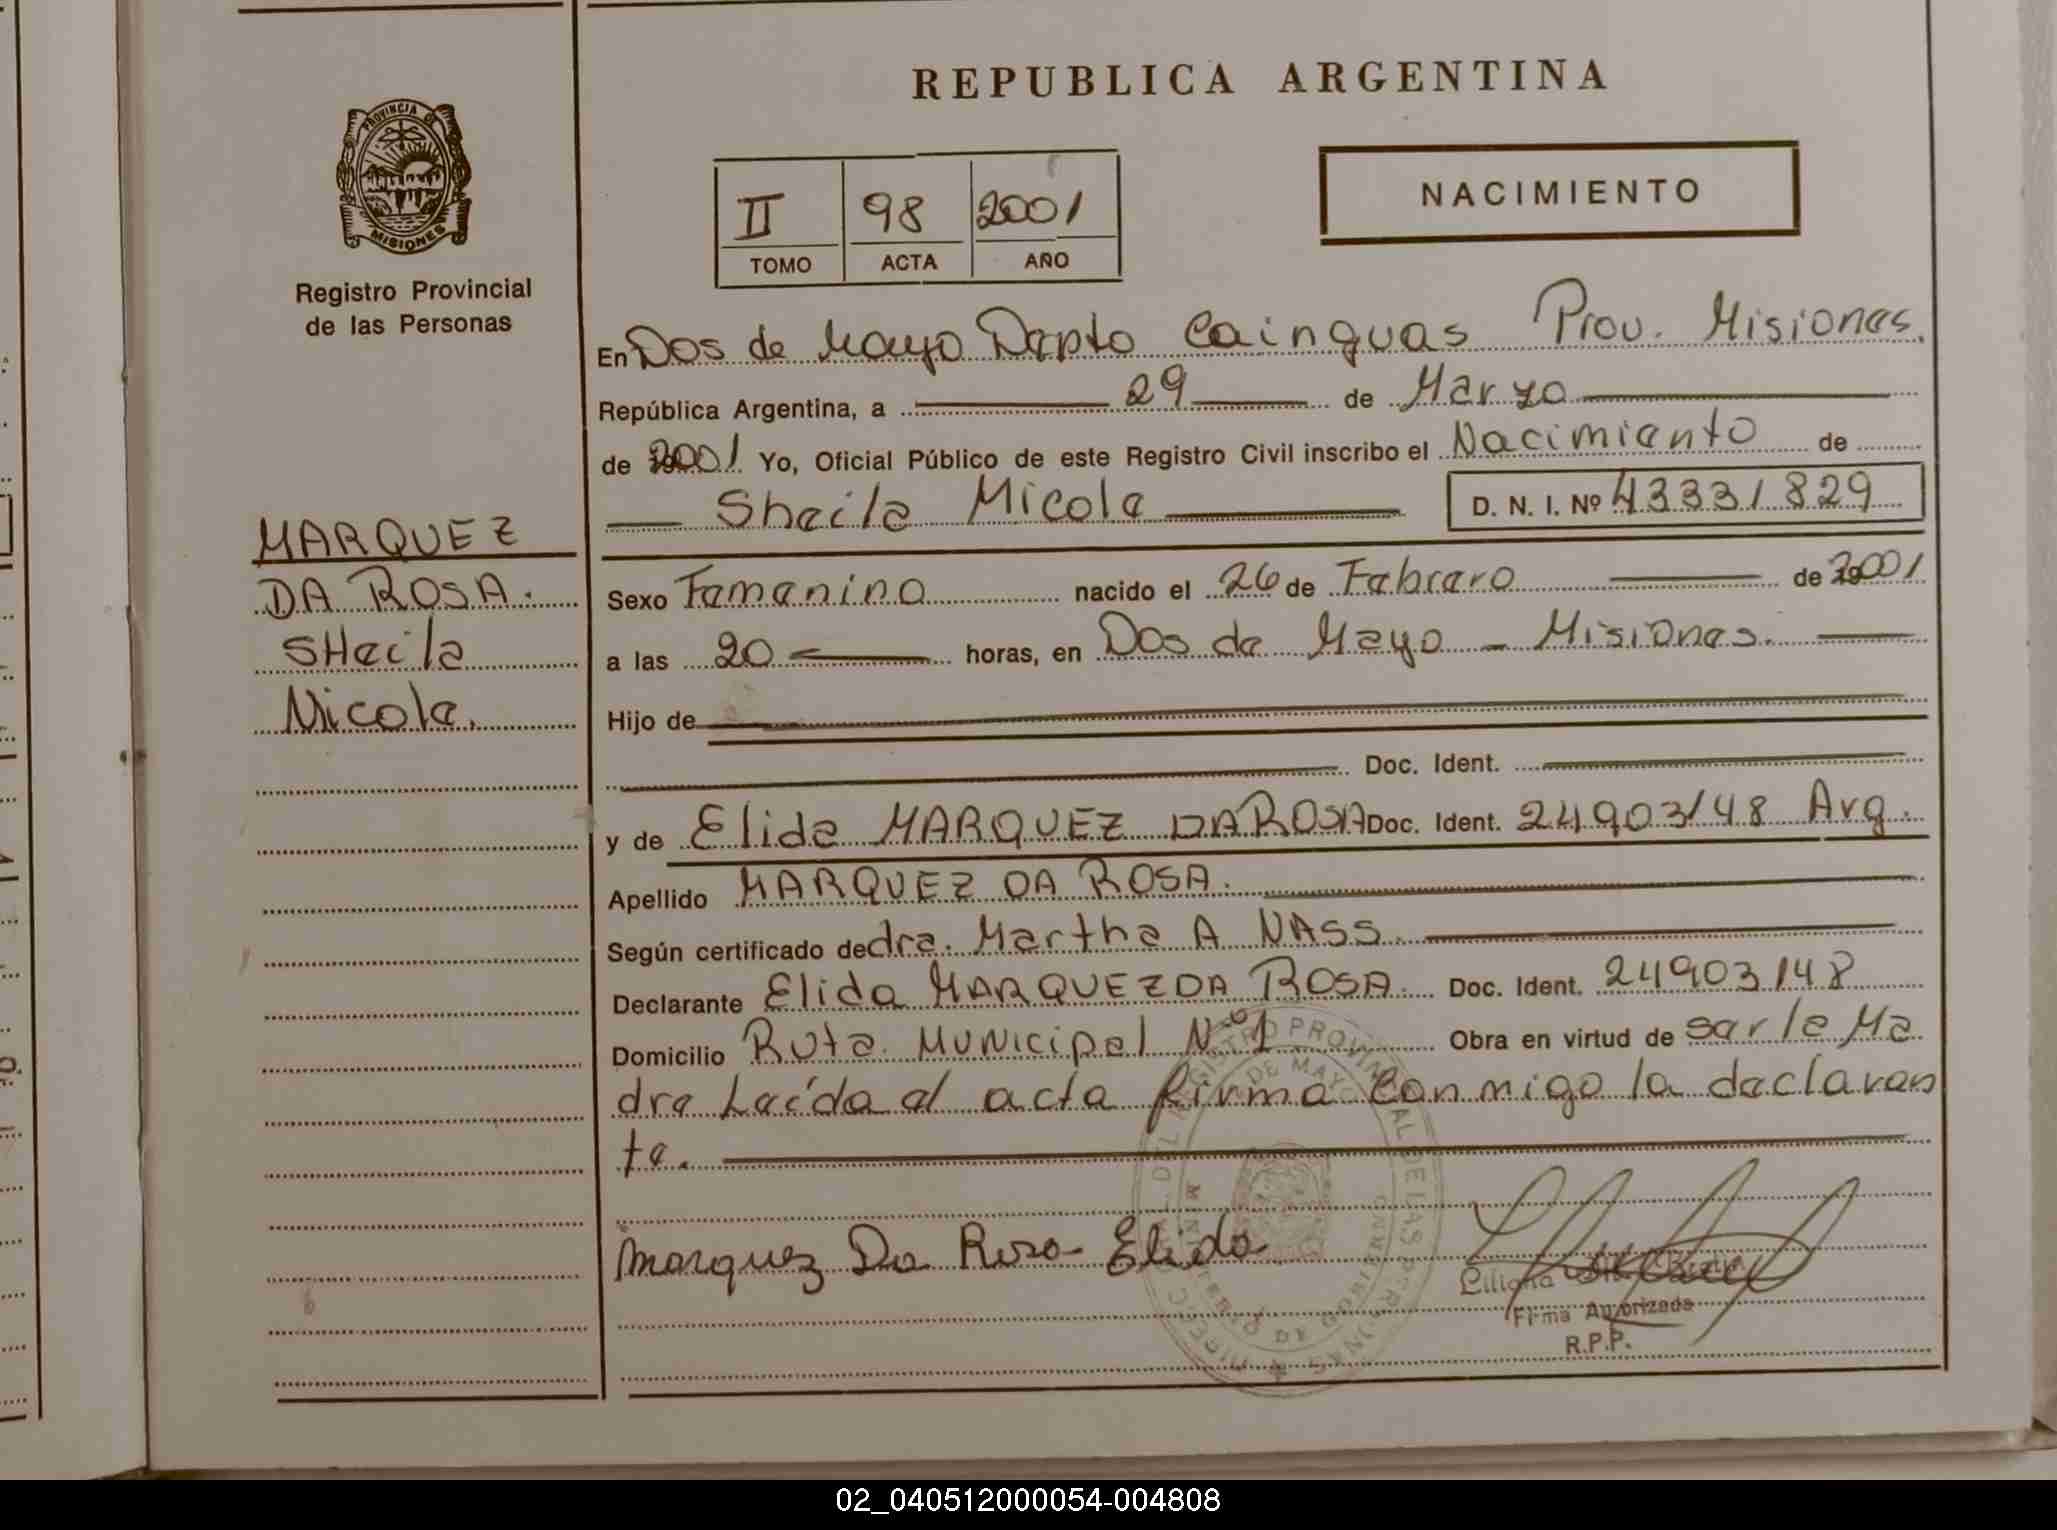 REPUBLICA ARGENTINA
PROVINCIA DE
MISIONES
Registro Provincial
de las Personas
II 98 2001
TOMO ACTA AÑO
NACIMIENTO
En Dos de Mayo Dapto Cainguas Prov. Misiones.
República Argentina, a 29 de Marzo
de 2001 Yo, Oficial Público de este Registro Civil inscribo el Nacimiento de
Sheila Micole D. N. I. Nº 43331829
MARQUEZ
DA ROSA.
SHeila
Nicole.
Sexo Femenino nacido el 26 de Febrero de 2001
a las 20 horas, en Dos de Mayo - Misiones.
Hijo de
Doc. Ident.
y de Elida MARQUEZ DA ROSA Doc. Ident. 24903148 Arg.
Apellido MARQUEZ DA ROSA.
Según certificado de dra. Martha A NASS.
Declarante Elida MARQUEZ DA ROSA. Doc. Ident. 24903148
Domicilio Ruta Municipal Nº1 Obra en virtud de ser la Ma
dre Leída el acta firma conmigo la declaran
te.
Marquez Da Rosa Elida
Liliana
Firma Autorizada
R.P.P.
02_040512000054-004808